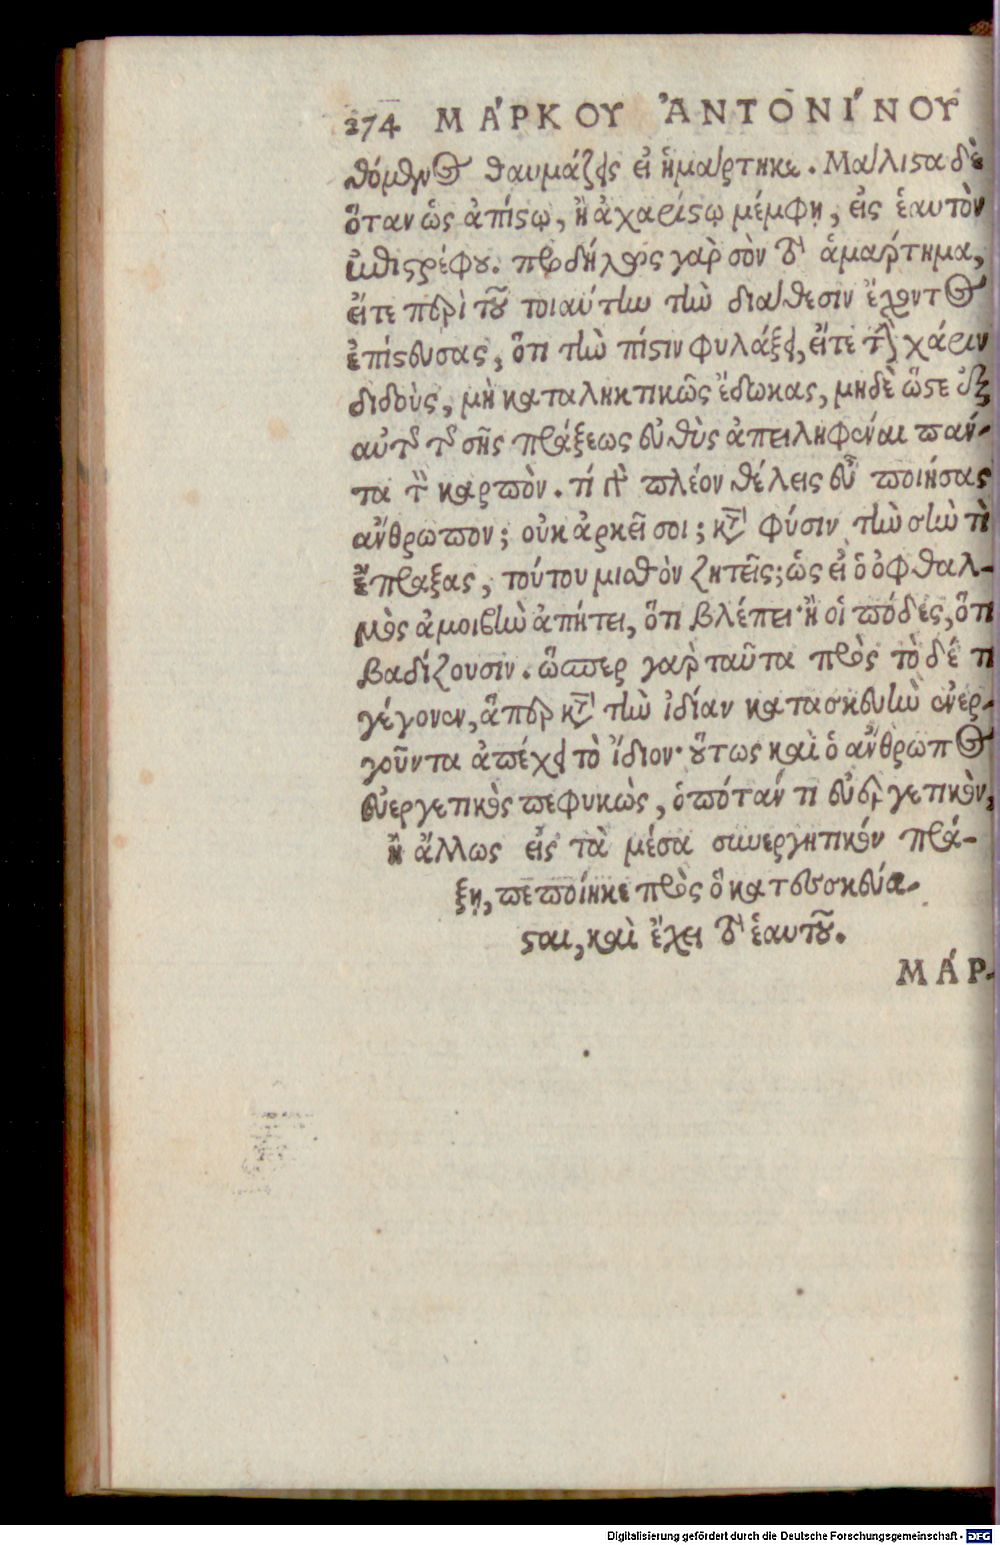 274 ΜΆΡΚΟΥ ἈΝΤΟΝΊΝΟΥ
θόμενος θαυμάζεις εἰ ἡμάρτηκε. Μάλιςα δὲ
ὅταν ὡς ἀπίςῳ, ἢ ἀχαρίςῳ μέμφῃ, εἰς ἑαυτὸν
ἐπιςρέφου. προδήλως γὰρ σὸν τὸ ἁμάρτημα,
εἴτε περὶ τοῦ τοιαύτην τὴν διάθεσιν ἔχοντος
ἐπίςευσας, ὅτι τὴν πίςιν φυλάξει, εἴτε τὴν χάριν
διδοὺς, μὴ καταληκτικῶς ἔδωκας, μηδὲ ὥςε ἐξ
αὐτῆς τῆς σῆς πράξεως εὐθὺς ἀπειληφέναι πάν-
τα τὸν καρπὸν. τί γὰρ πλέον θέλεις εὖ ποιήσας
ἄνθρωπον; οὐκ ἀρκεῖ σοι; κατὰ φύσιν τὴν σὴν τὶ
ἔπραξας, τούτου μισθὸν ζητεῖς; ὡς εἰ ὁ ὀφθαλ-
μὸς ἀμοιβὴν ἀπῄτει, ὅτι βλέπει· ἢ οἱ πόδες, ὅτι
βαδίζουσιν. ὥσπερ γὰρ ταῦτα πρὸς τὸ δέ τι
γέγονεν, ἅπερ κατὰ τὴν ἰδίαν κατασκευὴν ἐνερ-
γοῦντα ἀπέχει τὸ ἴδιον· οὕτως καὶ ὁ ἄνθρωπος
εὐεργετικὸς πεφυκὼς, ὁπόταν τι εὐεργετικὸν,
ἢ ἄλλως εἰς τὰ μέσα συνεργητικόν πρά-
ξῃ, πεποίηκε πρὸς ὃ κατεσκεύα-
ςαι, καὶ ἔχει τὸ ἑαυτοῦ.
ΜΆΡ-
Digitalisierung gefördert durch die Deutsche Forschungsgemeinschaft - DFG